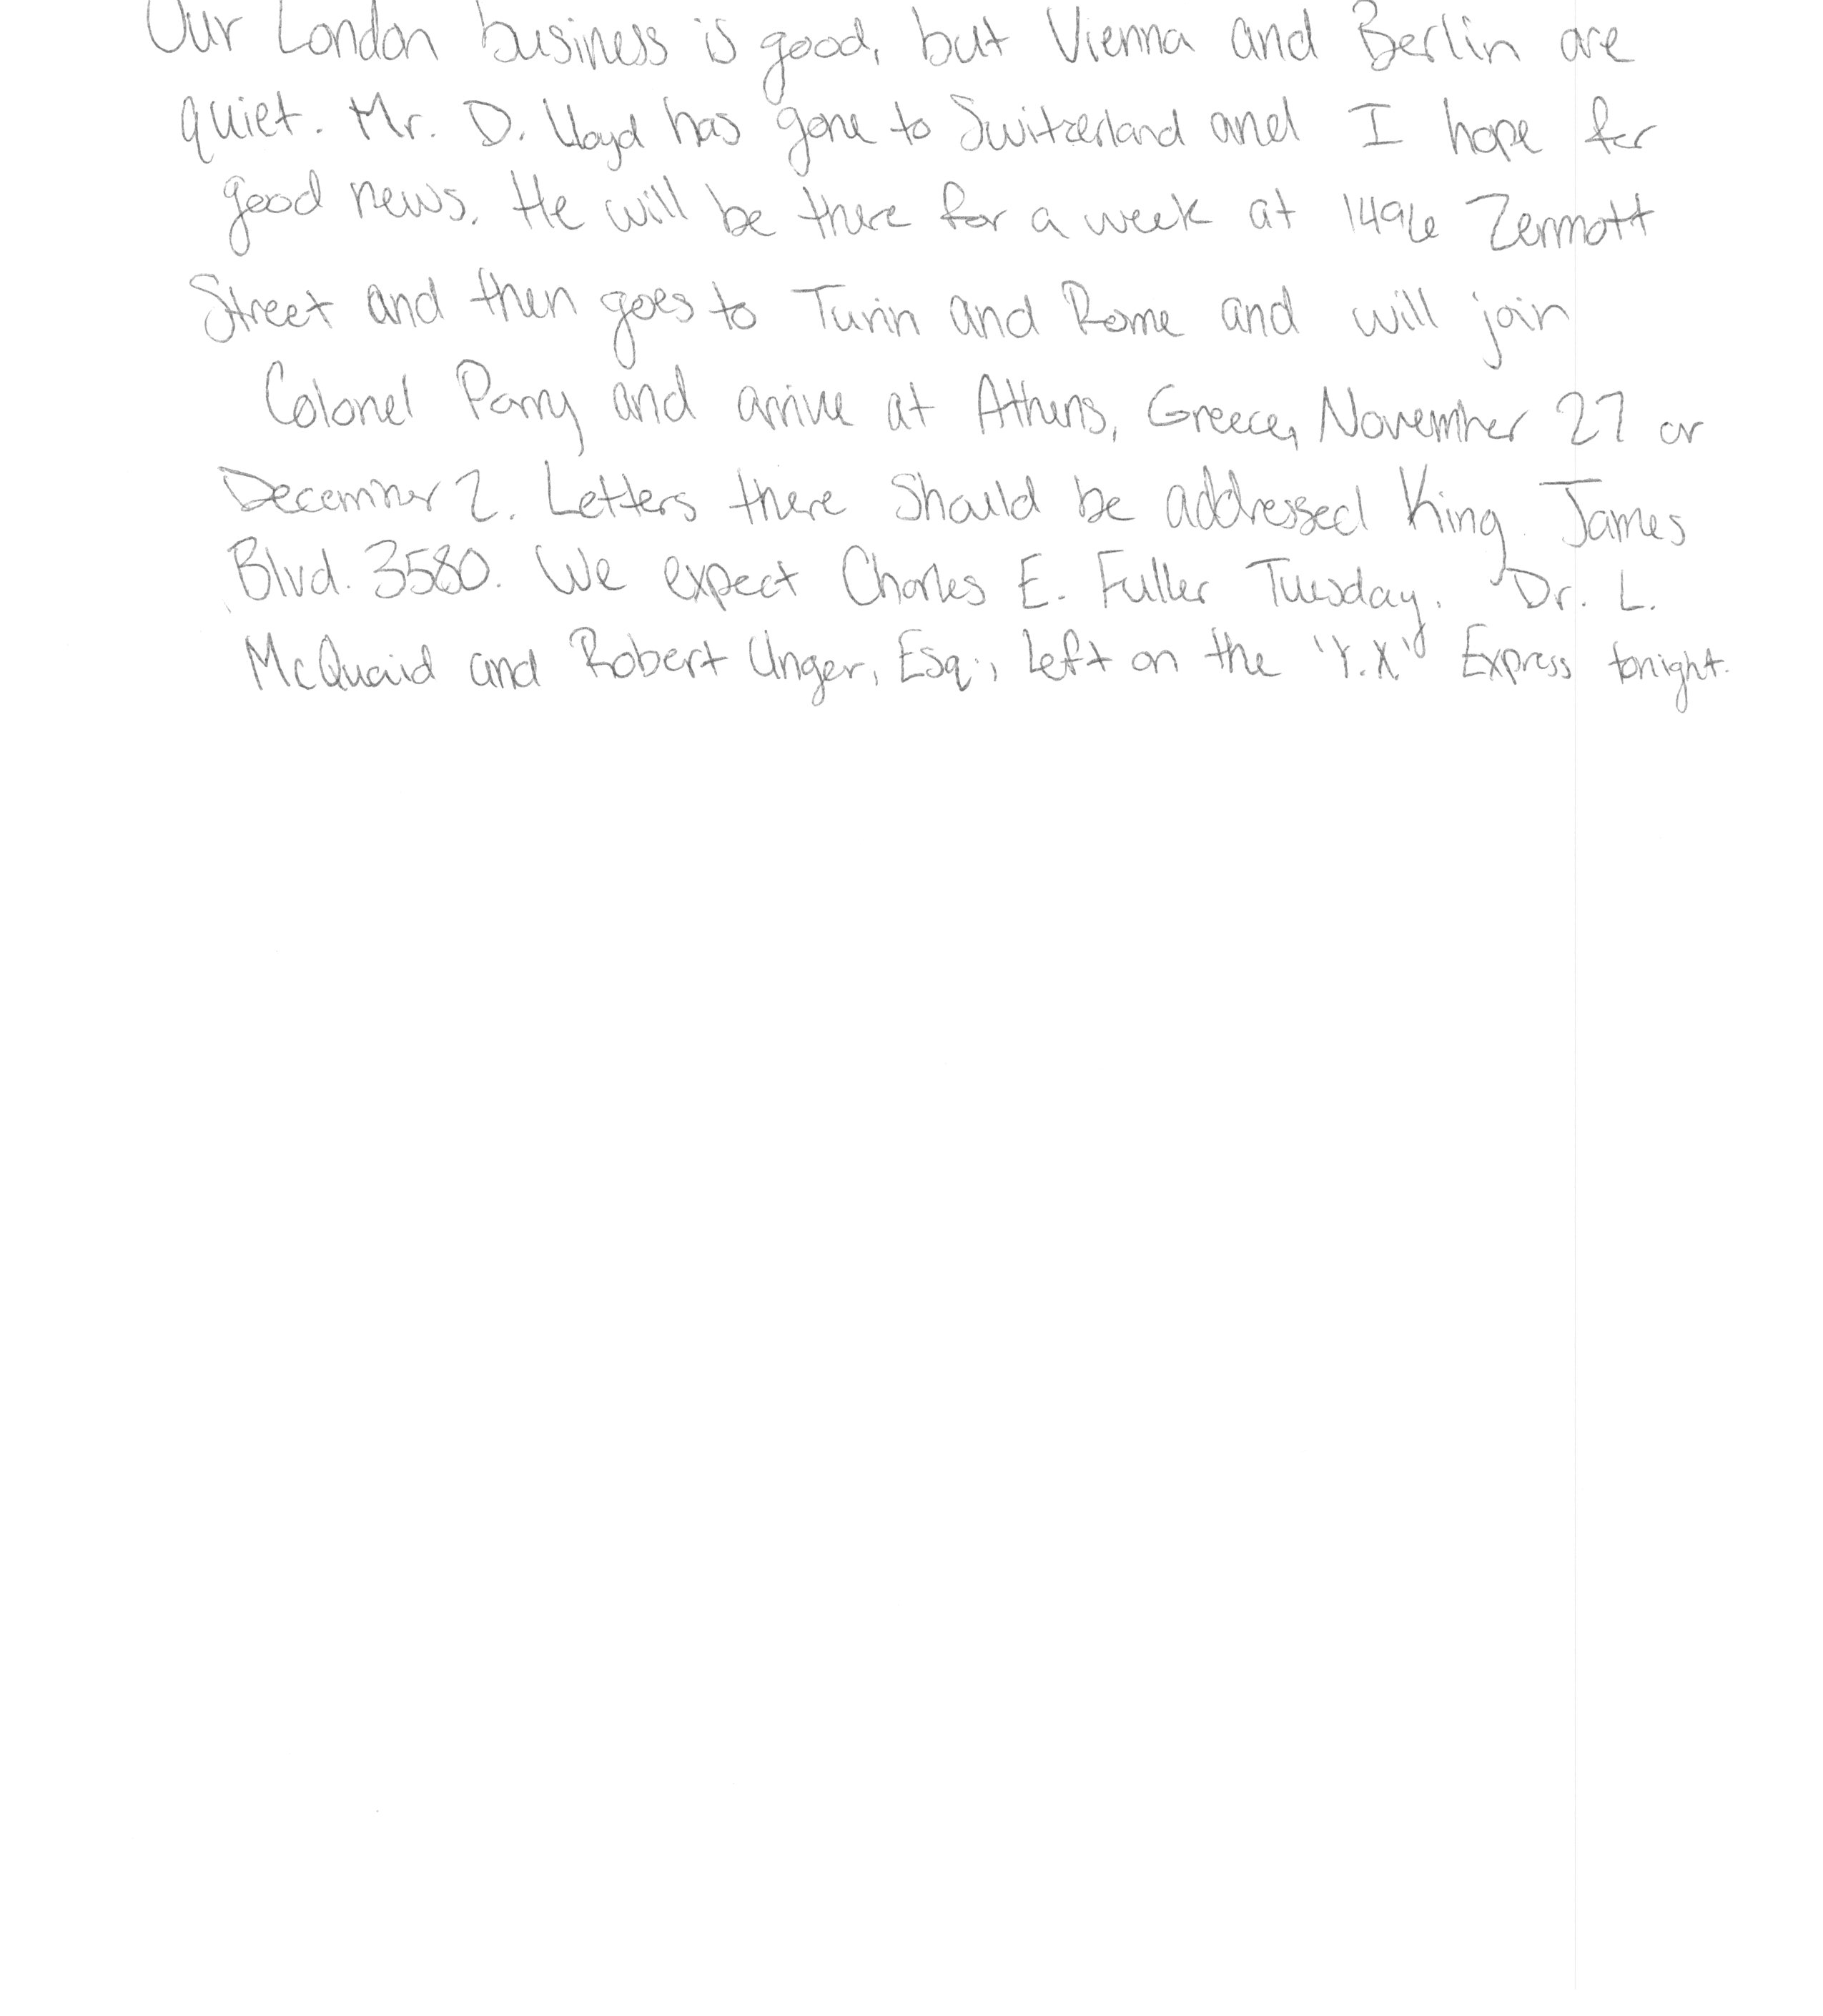 Our London business is good, but Vienna and Berlin are
quiet. Mr. D. Lloyd has gone to Switzerland and I hope for
good news. He will be there for a week at 1496 Zermott
Street and then goes to Turin and Rome and will join
Colonel Parry and arrive at Athens, Greece, November 27 or
December 2. Letters there should be addressed King James
Blvd. 3580. We expect Charles E. Fuller Tuesday. Dr. L.
McQuaid and Robert Unger, Esq., Left on the "Y.X." Express tonight.